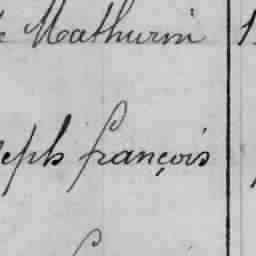 Mathurin
eph françois